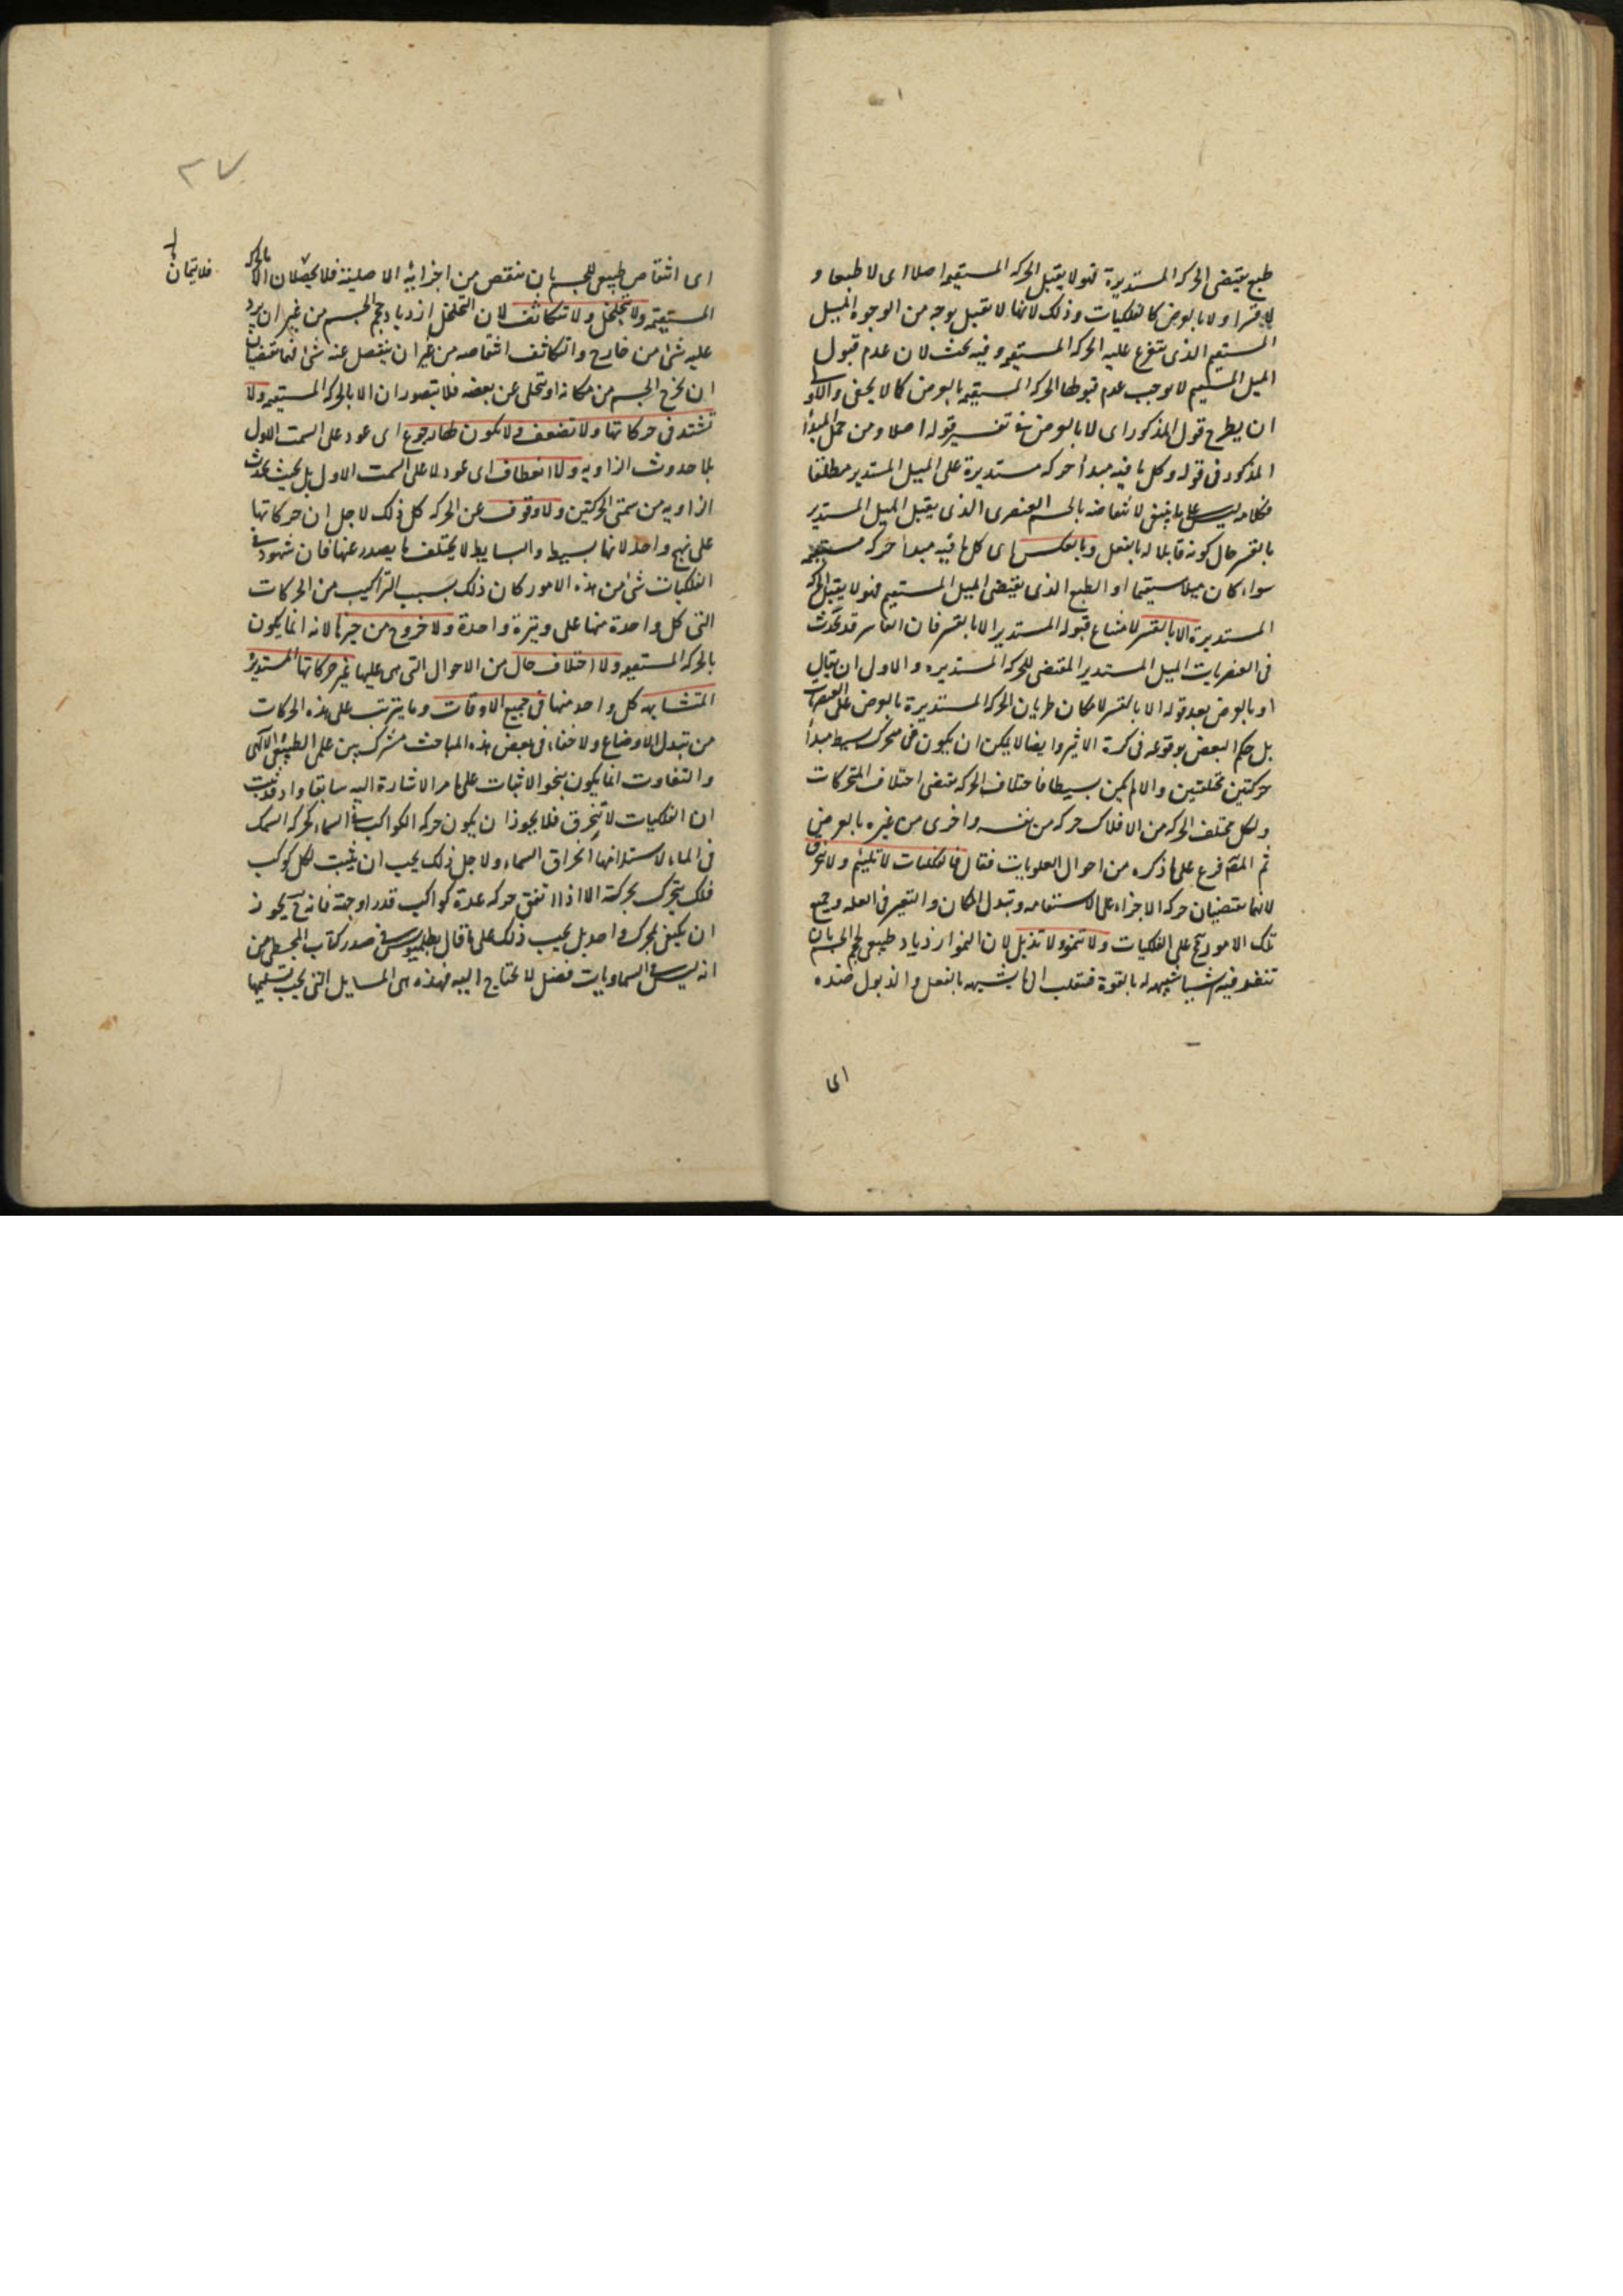 طبع يقتضى الحركه المستديرة فهو لا يقبل الحركه المستقيمه اصلا اى لا طبعا و
لا قسرا ولا بالعرض كالفلكيات وذلك لانها لا تقبل بوجه من الوجوه الميل
المستقيم الذى يتفرع عليه الحركه المستقيمه وفيه بحث لان عدم قبول
الميل المستقيم لا يوجب عدم قبولها الحركه المستقيمه بالعرض كما لا يخفى والاولى
ان يطرح قول المذكور اى لا بالعرض فى تفسير قوله اصلا ومن حمل المبدأ
المذكور فى قوله وكل ما فيه مبدأ حركه مستديرة على الميل المستدير مطلقا
فكلامه ليس على ما ينبغى لانتقاضه بالجسم العنصرى الذى يقبل الميل المستدير
بالقسر حال كونه قابلا له بالفعل وبالعكس اى كل ما فيه مبدأ حركه مستقيمه
سواء كان ميلا مستقيما او الطبع الذى يقتضى الميل المستقيم فهو لا يقبل الحركه
المستديرة الا بالقسر لامتناع قبوله المستدير الا بالقسر فان القاسر قد يحدث
فى العنصريات الميل المستدير المقتضى للحركه المستديره والاولى ان يقال
او بالعرض بعد قوله الا بالقسر لامكان طريان الحركه المستديرة بالعرض على العنصريات
بل حكم البعض بوقوعه فى كرة الاثير وايضا لا يمكن ان يكون فى متحرك بسيط مبدأ
حركتين مختلفتين والا لم يكن بسيطا فاختلاف الحركه يقتضى اختلاف المتحركات
ولكل مختلف الحركه من الافلاك حركه من نفسه واخرى من غيره بالعرض
ثم المصم فرع على ما ذكره من احوال العلويات فقال فالفلكيات لا تلتئم ولا تنخرق
لانهما يقتضيان حركه الاجزاء على الاستقامه وتبدل المكان والتغير فى العله وجميع
تلك الامور مح على الفلكيات ولا تنمو ولا تذبل لان النمو ازدياد طبيعى لحجم الجسم بان
تنفذ فيه شيا شبيهه له بالقوة فتقلب الى ما يشبهه بالفعل والذبول ضده
اى
اى انتقاص طبيعى للجسم بان ينتقص من اجزائه الاصلية فلا يحصلان الا بالحركه
فلا يتمان
المستقيمه ولا تتخلخل ولا تتكاثف لان التخلخل ازدياد حجم الجسم من غير ان يرد
عليه شئ من خارج والتكاثف انتقاصه من غير ان ينفصل عنه شئ فهما يقتضيان
ان يخرج الجسم من مكانه او يتخلى عن بعضه فلا يتصوران الا بالحركه المستقيمه ولا
تشتد فى حركاتها ولا تضعف ولا يكون لها رجوع اى عود على السمت الاول
بلا حدوث الزاويه ولا انعطاف اى عود لا على السمت الاول بل بحيث يحدث
الزاويه من سمتى الحركتين ولا وقوف عن الحركه كل ذلك لاجل ان حركاتها
على نهج واحد لانها بسيط والبسايط لا يختلف ما يصدر عنها فان شهود فى
الفلكيات شئ من هذه الامور كان ذلك بسبب التراكيب من الحركات
التى كل واحدة منها على وتيرة واحدة ولا خروج من حيزها لانه انما يكون
بالحركه المستقيمه ولا اختلاف حال من الاحوال التى هى عليها غير حركاتها المستديرة
المتشابهه كل واحد منها فى جميع الاوقات وما يترتب على هذه الحركات
من تبدل الاوضاع ولا خفاء فى بعض هذه المباحث مشترك بين علمى الطبيعى والالهى
والتفاوت انما يكون بنحو الاثبات على ما مر الاشارة اليه سابقا واذ قد ثبت
ان الفلكيات لا تنخرق فلا يجوز ان يكون حركه الكواكب فى السماء كحركه السمك
فى الماء لاستلزامها انخراق السماء ولاجل ذلك يجب ان يثبت لكل كوكب
فلك يتحرك بحركته الا اذا اتفق حركه عدة كواكب قدرا وجهة فانه ح يجوز
ان يكتفى بمحرك واحد بل يجب ذلك على ما قال بطلميوس فى صدر كتاب المجسطى من
انه ليس فى السماويات فضل لا يحتاج اليه فهذه هى المسايل التى يجب تسليمها